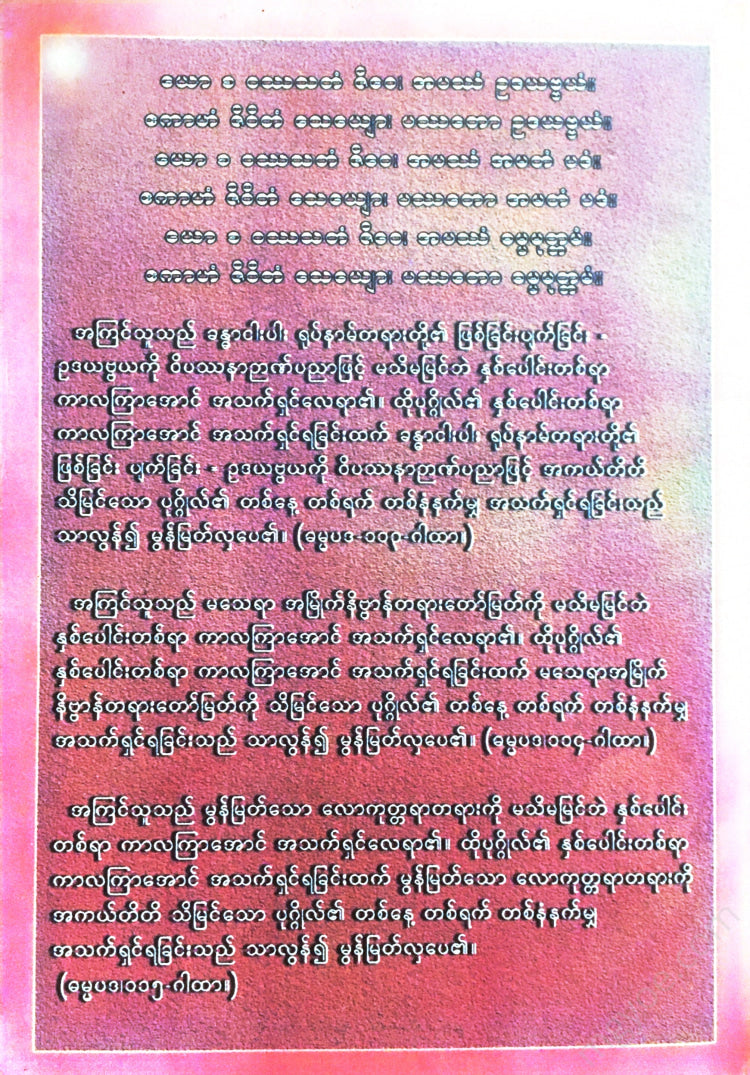 ယော စ ဝဿသတံ ဇီဝေ၊ အပဿံ ဥဒယဗ္ဗယံ။
ဧကာဟံ ဇီဝိတံ သေယျော၊ ပဿတော ဥဒယဗ္ဗယံ။
ယော စ ဝဿသတံ ဇီဝေ၊ အပဿံ အမတံ ပဒံ။
ဧကာဟံ ဇီဝိတံ သေယျော၊ ပဿတော အမတံ ပဒံ။
ယော စ ဝဿသတံ ဇီဝေ၊ အပဿံ ဓမ္မမုတ္တမံ။
ဧကာဟံ ဇီဝိတံ သေယျော၊ ပဿတော ဓမ္မမုတ္တမံ။
အကြင်သူသည် ခန္ဓာငါးပါး ရုပ်နာမ်တရားတို့၏ ဖြစ်ခြင်းပျက်ခြင်း -
ဥဒယဗ္ဗယကို ဝိပဿနာဉာဏ်ပညာဖြင့် မသိမမြင်ဘဲ နှစ်ပေါင်းတစ်ရာ
ကာလကြာအောင် အသက်ရှင်လေရာ၏။ ထိုပုဂ္ဂိုလ်၏ နှစ်ပေါင်းတစ်ရာ
ကာလကြာအောင် အသက်ရှင်ရခြင်းထက် ခန္ဓာငါးပါး ရုပ်နာမ်တရားတို့၏
ဖြစ်ခြင်း ပျက်ခြင်း - ဥဒယဗ္ဗယကို ဝိပဿနာဉာဏ်ပညာဖြင့် အကယ်တိတိ
သိမြင်သော ပုဂ္ဂိုလ်၏ တစ်နေ့ တစ်ရက် တစ်နံနက်မျှ အသက်ရှင်ရခြင်းသည်
သာလွန်၍ မွန်မြတ်လှပေ၏။ (ဓမ္မပဒ-၁၁၃-ဂါထာ။)
အကြင်သူသည် မသေရာ အမြိုက်နိဗ္ဗာန်တရားတော်မြတ်ကို မသိမမြင်ဘဲ
နှစ်ပေါင်းတစ်ရာ ကာလကြာအောင် အသက်ရှင်လေရာ၏။ ထိုပုဂ္ဂိုလ်၏
နှစ်ပေါင်းတစ်ရာ ကာလကြာအောင် အသက်ရှင်ရခြင်းထက် မသေရာအမြိုက်
နိဗ္ဗာန်တရားတော်မြတ်ကို သိမြင်သော ပုဂ္ဂိုလ်၏ တစ်နေ့ တစ်ရက် တစ်နံနက်မျှ
အသက်ရှင်ရခြင်းသည် သာလွန်၍ မွန်မြတ်လှပေ၏။ (ဓမ္မပဒ၊၁၁၄-ဂါထာ။)
အကြင်သူသည် မွန်မြတ်သော လောကုတ္တရာတရားကို မသိမမြင်ဘဲ နှစ်ပေါင်း
တစ်ရာ ကာလကြာအောင် အသက်ရှင်လေရာ၏။ ထိုပုဂ္ဂိုလ်၏ နှစ်ပေါင်းတစ်ရာ
ကာလကြာအောင် အသက်ရှင်ရခြင်းထက် မွန်မြတ်သော လောကုတ္တရာတရားကို
အကယ်တိတိ သိမြင်သော ပုဂ္ဂိုလ်၏ တစ်နေ့ တစ်ရက် တစ်နံနက်မျှ
အသက်ရှင်ရခြင်းသည် သာလွန်၍ မွန်မြတ်လှပေ၏။
(ဓမ္မပဒ၊၁၁၅-ဂါထာ။)